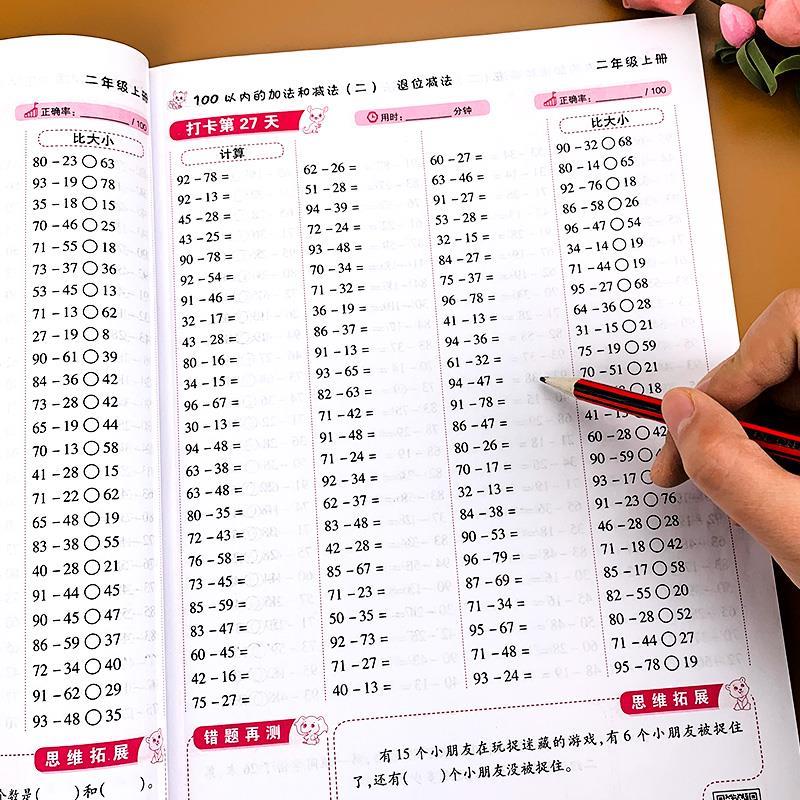 二年级上册
正确率: / 100
比大小
80 − 23 ○ 63
93 − 19 ○ 78
35 − 18 ○ 15
70 − 46 ○ 25
71 − 55 ○ 18
73 − 37 ○ 36
53 − 45 ○ 13
71 − 13 ○ 62
27 − 19 ○ 8
90 − 61 ○ 39
84 − 36 ○ 42
73 − 28 ○ 42
65 − 19 ○ 44
70 − 13 ○ 58
41 − 28 ○ 15
71 − 22 ○ 62
65 − 48 ○ 19
83 − 38 ○ 55
40 − 28 ○ 21
91 − 44 ○ 45
90 − 45 ○ 47
86 − 59 ○ 37
72 − 34 ○ 40
91 − 62 ○ 29
93 − 48 ○ 35
思维拓展
个数是( )和( )。
100 以内的加法和减法（二） 退位减法
二年级上册
打卡第 27 天
用时: 分钟
正确率: / 100
计算
92 − 78 =
92 − 13 =
45 − 28 =
43 − 25 =
90 − 78 =
92 − 54 =
91 − 46 =
32 − 17 =
43 − 28 =
80 − 16 =
34 − 15 =
96 − 67 =
30 − 13 =
94 − 48 =
63 − 38 =
63 − 48 =
80 − 35 =
72 − 43 =
76 − 58 =
73 − 45 =
85 − 59 =
83 − 47 =
60 − 45 =
42 − 16 =
75 − 27 =
62 − 26 =
51 − 28 =
94 − 39 =
72 − 24 =
93 − 48 =
70 − 34 =
71 − 32 =
36 − 19 =
86 − 37 =
91 − 13 =
93 − 65 =
82 − 63 =
71 − 42 =
91 − 48 =
71 − 24 =
92 − 34 =
62 − 37 =
83 − 48 =
42 − 28 =
86 − 67 =
71 − 23 =
50 − 35 =
92 − 73 =
71 − 27 =
40 − 13 =
60 − 27 =
63 − 46 =
91 − 27 =
53 − 28 =
32 − 15 =
84 − 27 =
75 − 37 =
96 − 78 =
41 − 13 =
94 − 36 =
61 − 32 =
94 − 47 =
91 − 78 =
86 − 47 =
80 − 26 =
70 − 17 =
32 − 13 =
84 − 38 =
90 − 53 =
96 − 79 =
87 − 69 =
71 − 34 =
95 − 67 =
71 − 48 =
93 − 24 =
比大小
90 − 32 ○ 68
80 − 14 ○ 65
92 − 76 ○ 18
86 − 58 ○ 26
96 − 47 ○ 54
34 − 14 ○ 19
71 − 44 ○ 19
95 − 27 ○ 68
64 − 36 ○ 28
31 − 15 ○ 21
75 − 19 ○ 59
70 − 51 ○ 21
○ 18
41 −
60 − 28 ○ 42
90 − 59 ○
93 − 17 ○
91 − 23 ○ 76
46 − 28 ○ 28
71 − 18 ○ 42
85 − 17 ○ 58
82 − 55 ○ 20
80 − 28 ○ 52
71 − 44 ○ 27
95 − 78 ○ 19
错题再测
思维拓展
有 15 个小朋友在玩捉迷藏的游戏,有 6 个小朋友被捉住
了,还有( )个小朋友没被捉住。